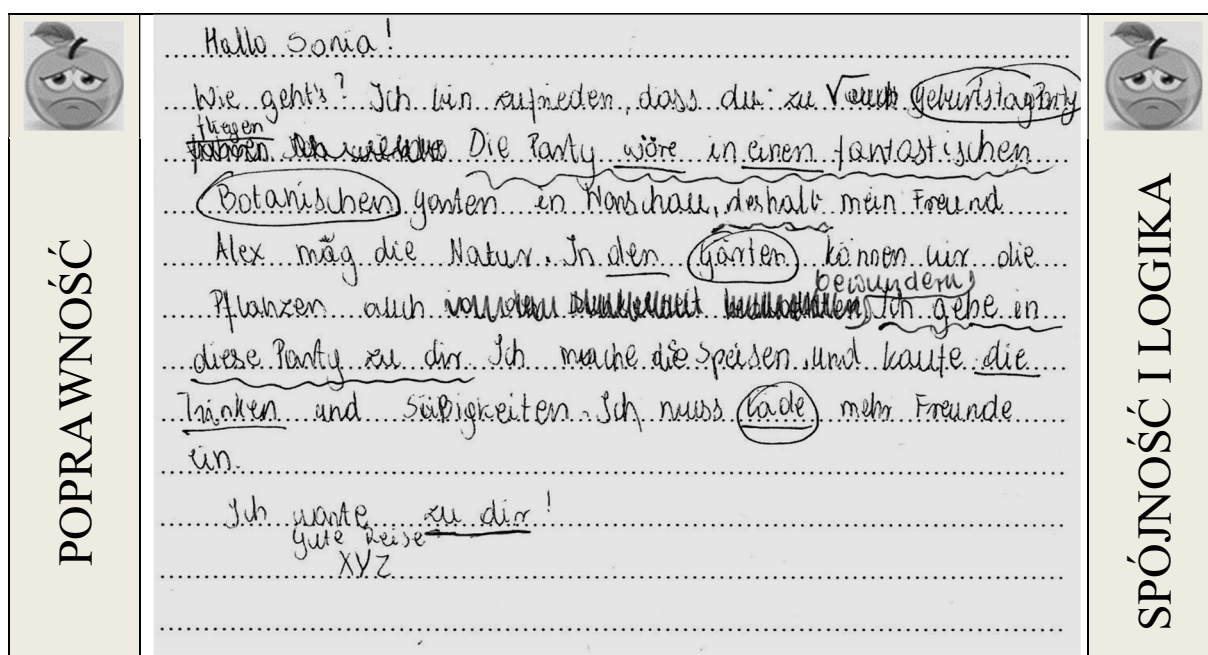 POPRAWNOŚĆ
Hallo Sonia!
Wie geht's? Ich bin zufrieden, dass du zu √ GeburtstagParty
fliegen
Die Party wäre in einen fantastischen
Botanischen garten in Warschau, deshalb mein Freund
Alex mag die Natur. In den Gärten können wir die
bewundern
Pflanzen auch Ich gehe in
diese Party zu dir. Ich mache die Speisen und kaufe die
Tränken und Süßigkeiten. Ich muss lade mehr Freunde
ein.
Ich warte zu dir!
Gute Reise
XYZ
SPÓJNOŚĆ I LOGIKA